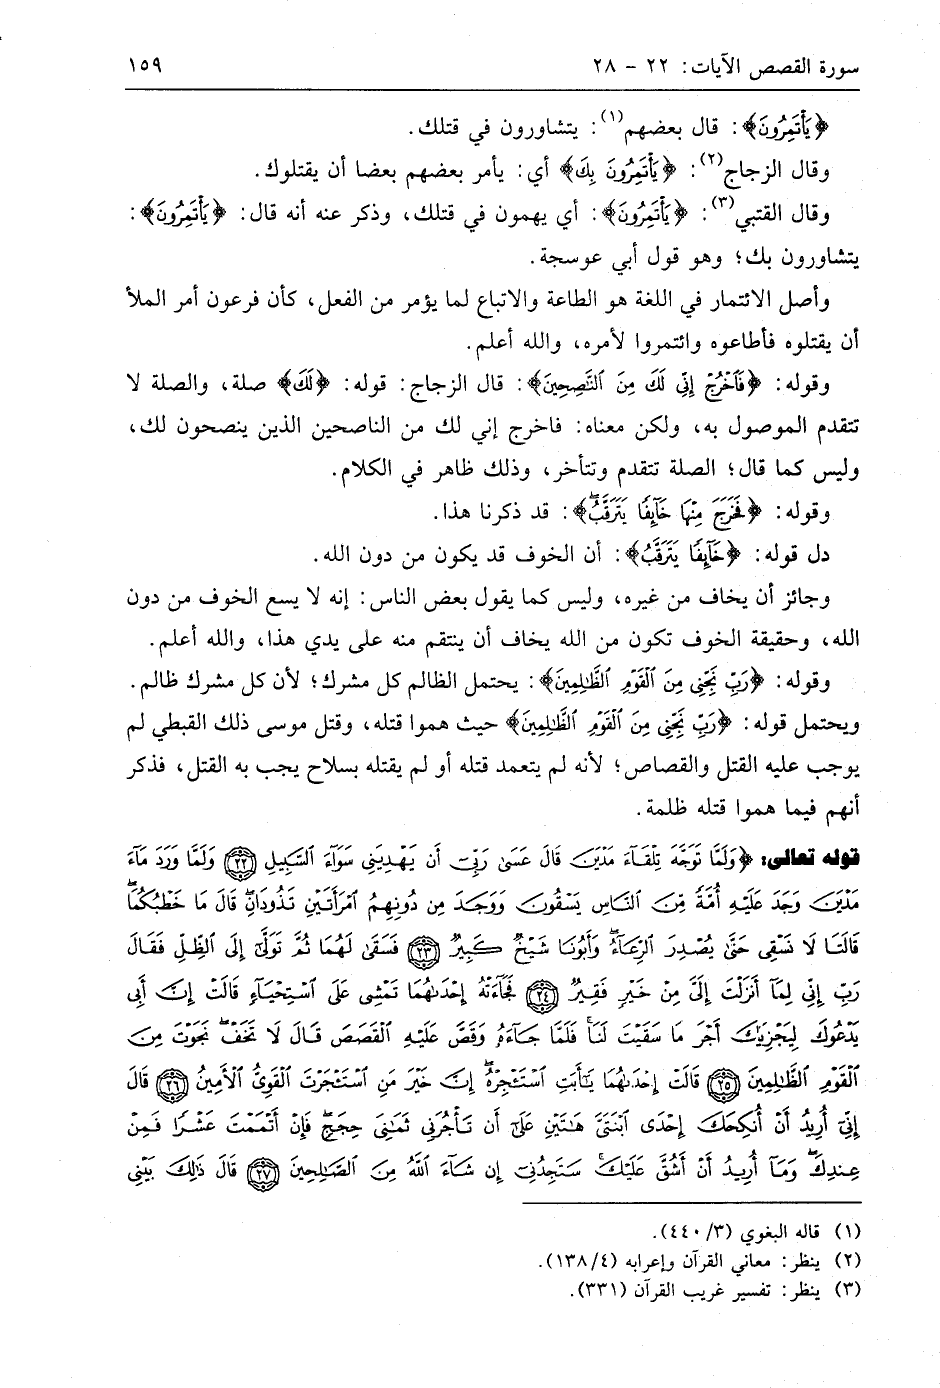 سورة القصص الآيات: ٢٢ - ٢٨ ١٥٩
﴿يَأْتَمِرُونَ﴾: قال بعضهم(١): يتشاورون في قتلك.
وقال الزجاج(٢): ﴿يَأْتَمِرُونَ بِكَ﴾ أي: يأمر بعضهم بعضا أن يقتلوك.
وقال القتبي(٣): ﴿يَأْتَمِرُونَ﴾: أي يهمون في قتلك، وذكر عنه أنه قال: ﴿يَأْتَمِرُونَ﴾:
يتشاورون بك؛ وهو قول أبي عوسجة.
وأصل الائتمار في اللغة هو الطاعة والاتباع لما يؤمر من الفعل، كأن فرعون أمر الملأ
أن يقتلوه فأطاعوه وائتمروا لأمره، والله أعلم.
وقوله: ﴿فَٱخْرُجْ إِنِّي لَكَ مِنَ ٱلنَّٰصِحِينَ﴾: قال الزجاج: قوله: ﴿لَكَ﴾ صلة، والصلة لا
تتقدم الموصول به، ولكن معناه: فاخرج إني لك من الناصحين الذين ينصحون لك،
وليس كما قال؛ الصلة تتقدم وتتأخر، وذلك ظاهر في الكلام.
وقوله: ﴿فَخَرَجَ مِنْهَا خَآئِفًا يَتَرَقَّبُۖ﴾: قد ذكرنا هذا.
دل قوله: ﴿خَآئِفًا يَتَرَقَّبُ﴾: أن الخوف قد يكون من دون الله.
وجائز أن يخاف من غيره، وليس كما يقول بعض الناس: إنه لا يسع الخوف من دون
الله، وحقيقة الخوف تكون من الله يخاف أن ينتقم منه على يدي هذا، والله أعلم.
وقوله: ﴿رَبِّ نَجِّنِي مِنَ ٱلْقَوْمِ ٱلظَّٰلِمِينَ﴾: يحتمل الظالم كل مشرك؛ لأن كل مشرك ظالم.
ويحتمل قوله: ﴿رَبِّ نَجِّنِي مِنَ ٱلْقَوْمِ ٱلظَّٰلِمِينَ﴾ حيث هموا قتله، وقتل موسى ذلك القبطي لم
يوجب عليه القتل والقصاص؛ لأنه لم يتعمد قتله أو لم يقتله بسلاح يجب به القتل، فذكر
أنهم فيما هموا قتله ظلمة.
قوله تعالى: ﴿وَلَمَّا تَوَجَّهَ تِلْقَآءَ مَدْيَنَ قَالَ عَسَىٰ رَبِّيٓ أَن يَهْدِيَنِي سَوَآءَ ٱلسَّبِيلِ ﴿٢٢﴾ وَلَمَّا وَرَدَ مَآءَ
مَدْيَنَ وَجَدَ عَلَيْهِ أُمَّةً مِّنَ ٱلنَّاسِ يَسْقُونَ وَوَجَدَ مِن دُونِهِمُ ٱمْرَأَتَيْنِ تَذُودَانِۖ قَالَ مَا خَطْبُكُمَاۖ
قَالَتَا لَا نَسْقِي حَتَّىٰ يُصْدِرَ ٱلرِّعَآءُۖ وَأَبُونَا شَيْخٌ كَبِيرٌ ﴿٢٣﴾ فَسَقَىٰ لَهُمَا ثُمَّ تَوَلَّىٰٓ إِلَى ٱلظِّلِّ فَقَالَ
رَبِّ إِنِّي لِمَآ أَنزَلْتَ إِلَيَّ مِنْ خَيْرٍ فَقِيرٌ ﴿٢٤﴾ فَجَآءَتْهُ إِحْدَىٰهُمَا تَمْشِي عَلَى ٱسْتِحْيَآءٍ قَالَتْ إِنَّ أَبِي
يَدْعُوكَ لِيَجْزِيَكَ أَجْرَ مَا سَقَيْتَ لَنَاۚ فَلَمَّا جَآءَهُۥ وَقَصَّ عَلَيْهِ ٱلْقَصَصَ قَالَ لَا تَخَفْۖ نَجَوْتَ مِنَ
ٱلْقَوْمِ ٱلظَّٰلِمِينَ ﴿٢٥﴾ قَالَتْ إِحْدَىٰهُمَا يَٰٓأَبَتِ ٱسْتَـْٔجِرْهُۖ إِنَّ خَيْرَ مَنِ ٱسْتَـْٔجَرْتَ ٱلْقَوِيُّ ٱلْأَمِينُ ﴿٢٦﴾ قَالَ
إِنِّيٓ أُرِيدُ أَنْ أُنكِحَكَ إِحْدَى ٱبْنَتَيَّ هَٰتَيْنِ عَلَىٰٓ أَن تَأْجُرَنِي ثَمَٰنِيَ حِجَجٍۖ فَإِنْ أَتْمَمْتَ عَشْرًا فَمِنْ
عِندِكَۖ وَمَآ أُرِيدُ أَنْ أَشُقَّ عَلَيْكَۚ سَتَجِدُنِيٓ إِن شَآءَ ٱللَّهُ مِنَ ٱلصَّٰلِحِينَ ﴿٢٧﴾ قَالَ ذَٰلِكَ بَيْنِي
(١) قاله البغوي (٤٤٠/٣).
(٢) ينظر: معاني القرآن وإعرابه (١٣٨/٤).
(٣) ينظر: تفسير غريب القرآن (٣٣١).